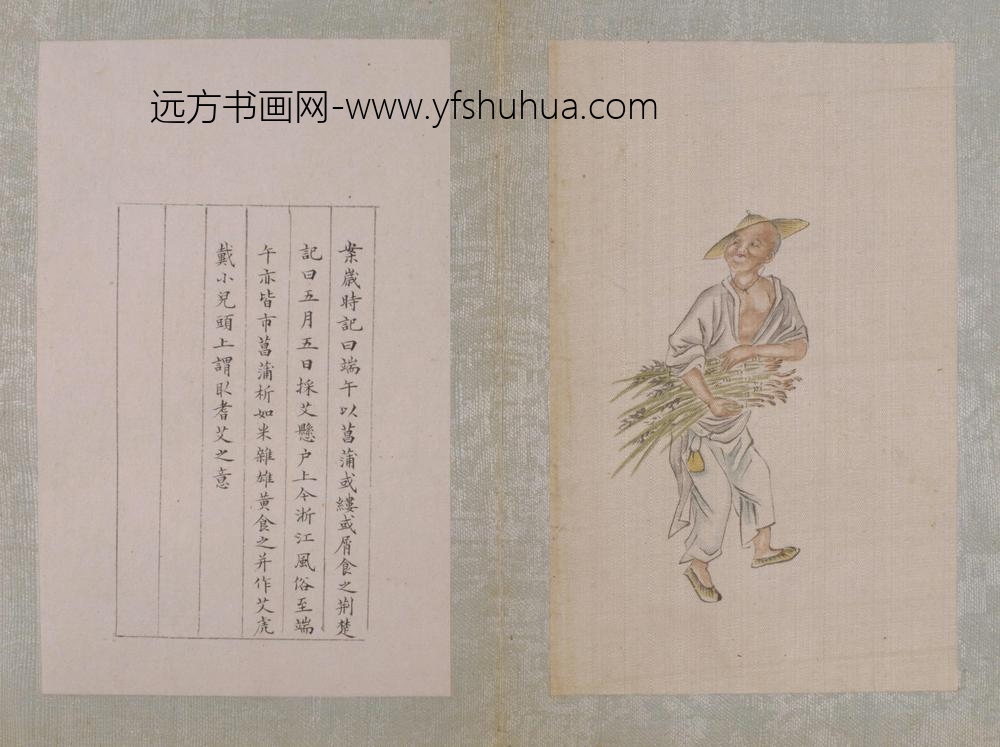 远方书画网-www.yfshuhua.com
案嵗時記曰端午以菖蒲或縷或屑食之荆楚
記曰五月五日採艾懸户上今浙江風俗至端
午亦皆市菖蒲析如米雜雄黄食之并作艾虎
戴小兒頭上謂取耆艾之意